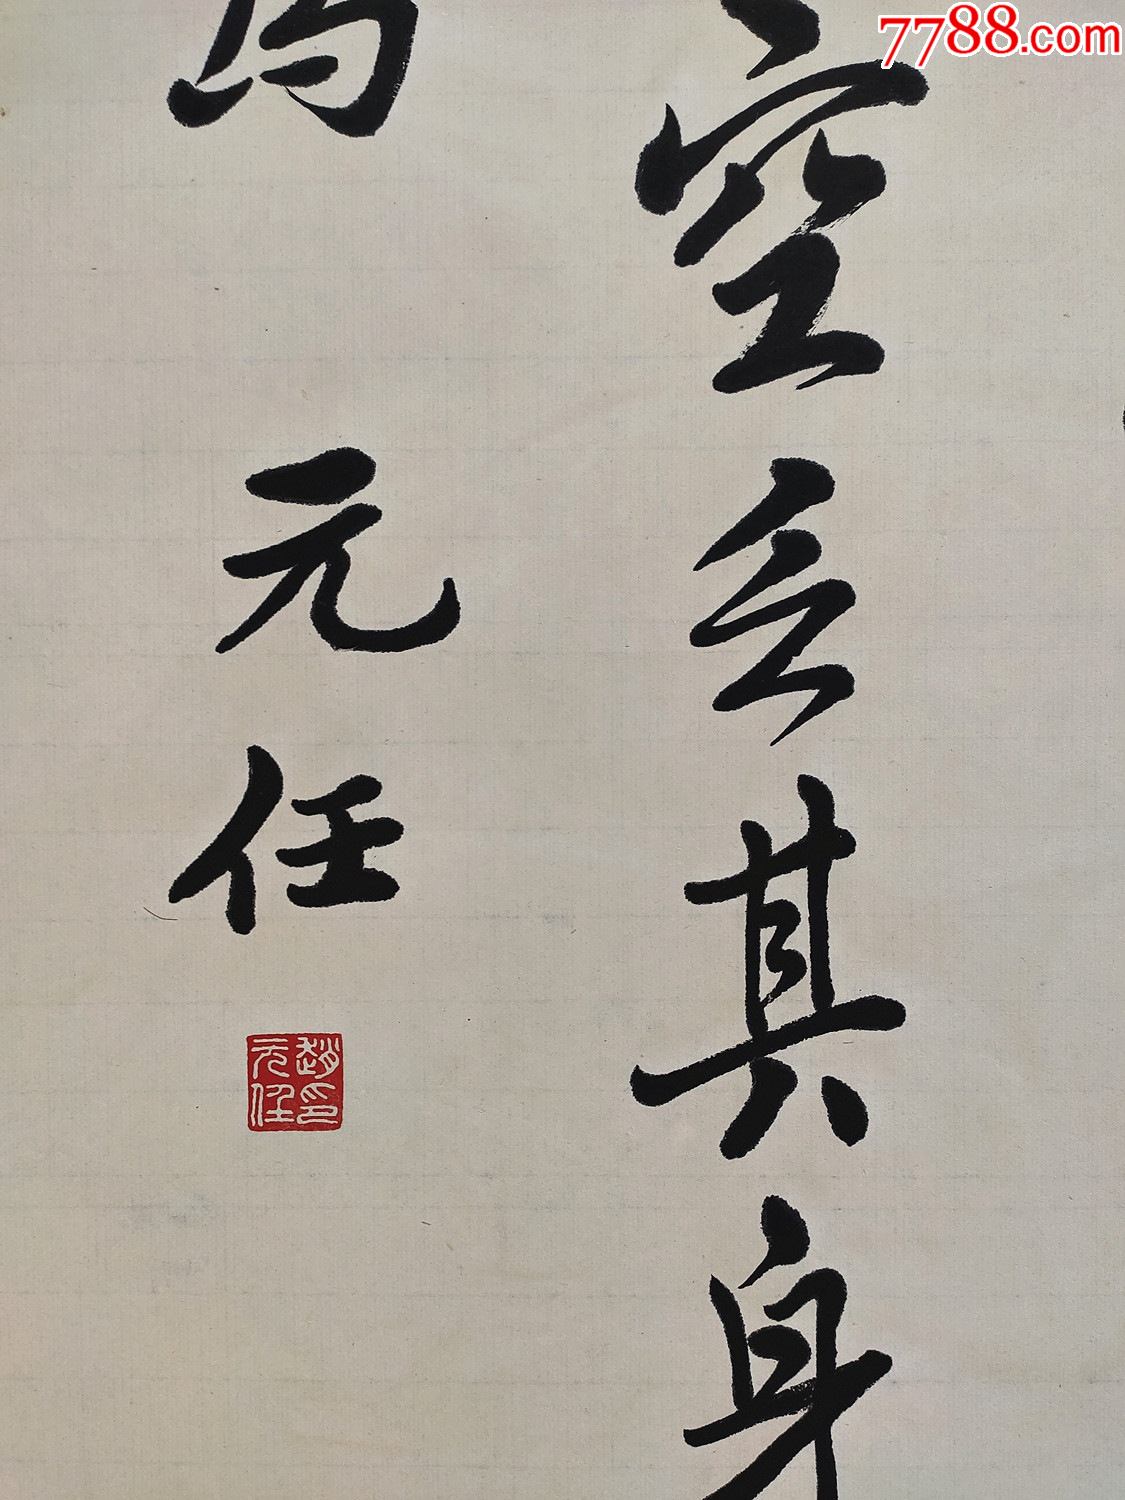 7788.com
空乏其身
元任
趙印
元任